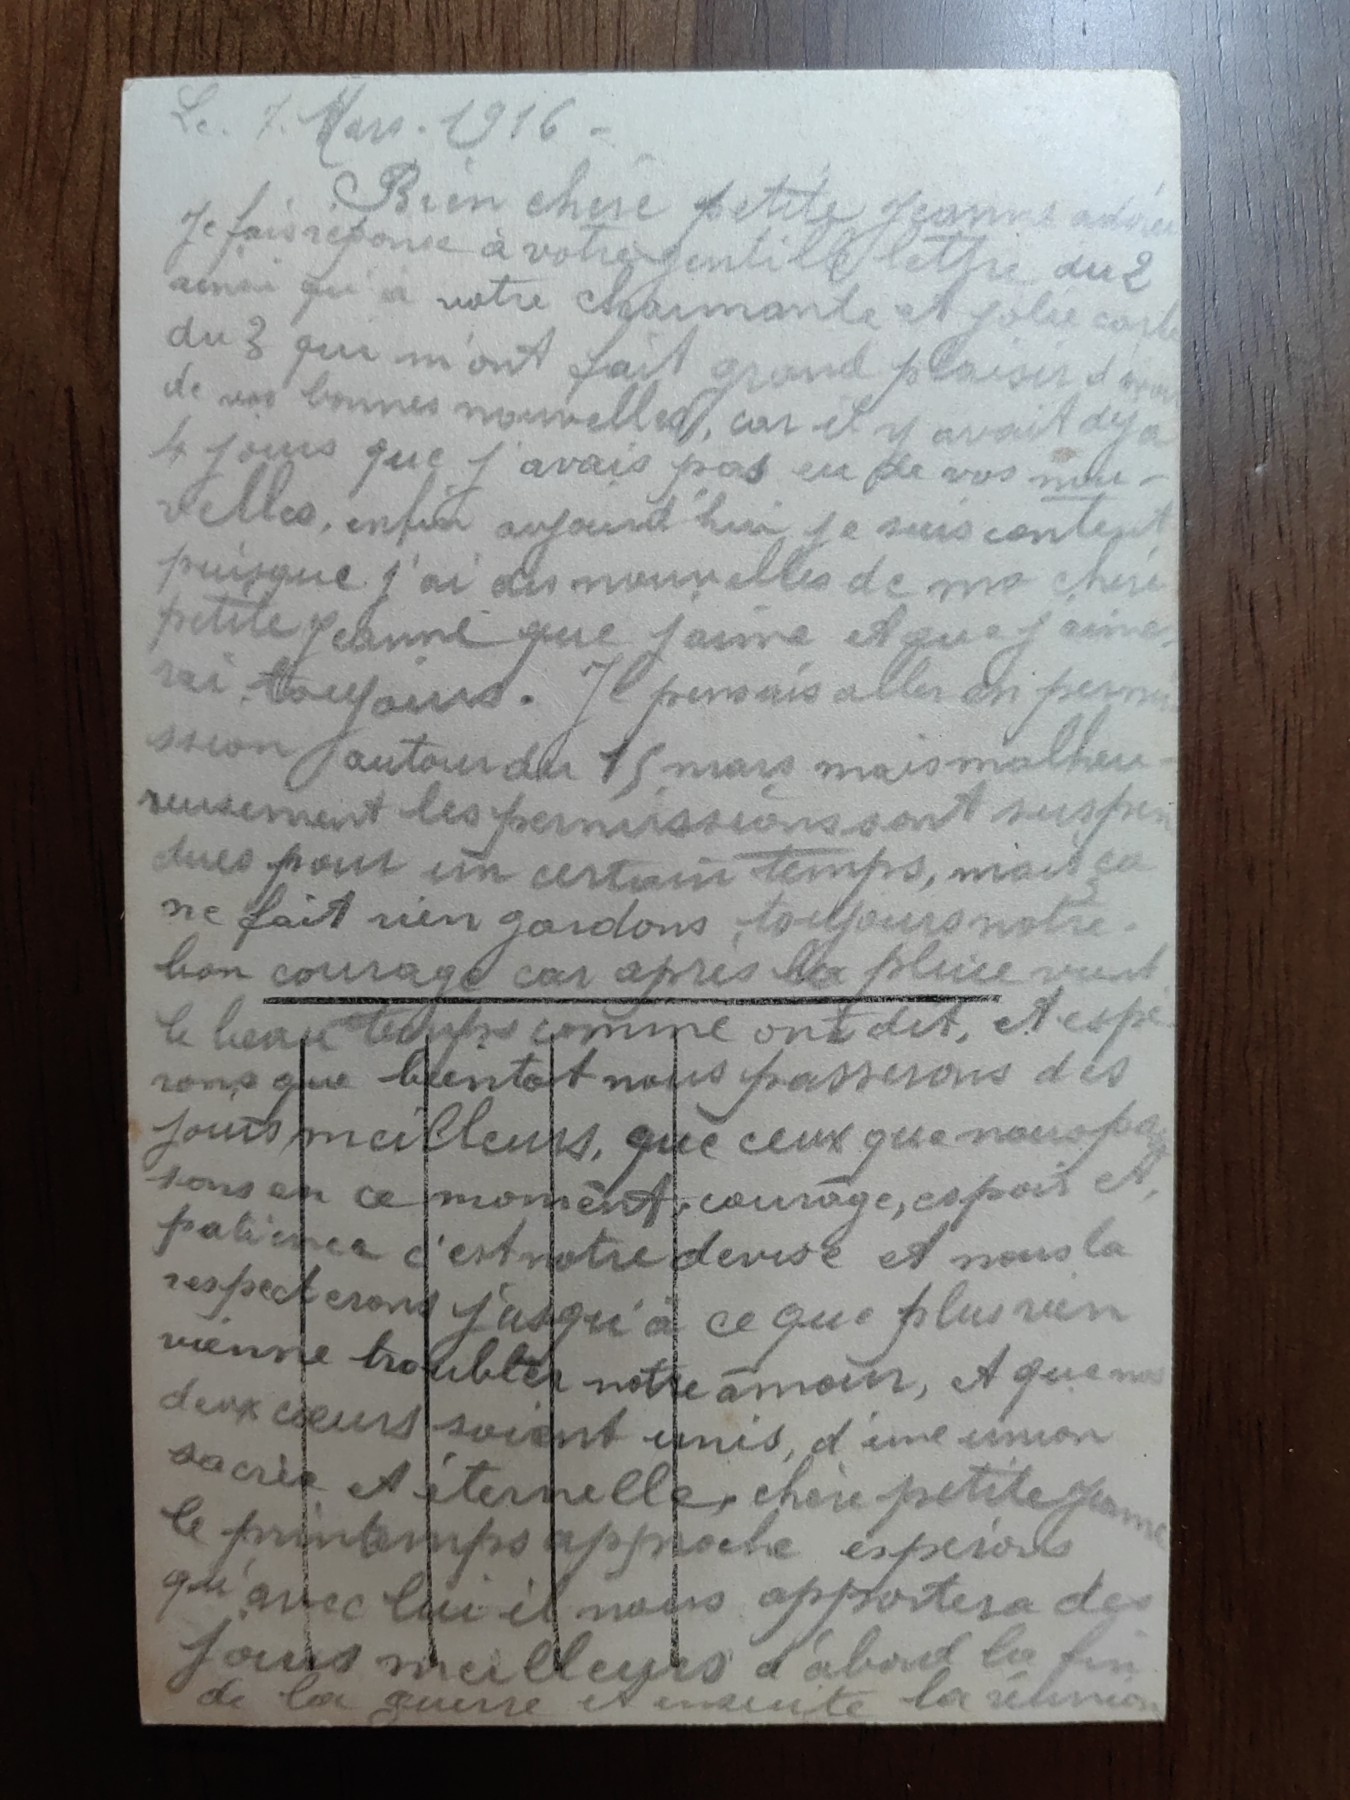 Le. 7. Mars. 1916 -
Bien chére petite Jeanne adorée
Je fais réponse à votre gentille lettre du 2
ainsi qu'à votre charmante et jolie carte
du 3 qui m'ont fait grand plaisir d'avoir
de vos bonnes nouvelles, car il y avait déja
4 jours que j'avais pas eu de vos nou-
velles, enfin aujourd'hui je suis content
puisque j'ai des nouvelles de ma chéré
petite Jeanne que j'aime et que j'aime-
rai toujours. Je pensais aller en permi
ssion autour du 15 mars mais malheu-
reusement les permissions sont suspen
dues pour un certain temps, mais ça
ne fait rien gardons toujours notre
bon courage car aprés la pluie vient
le beau temps comme ont dit, et espé
rons que bientot nous passerons des
jours meilleurs, que ceux que nous pas
sons en ce moment, courage, espoir et,
patience c'est notre devise et nous la
respecterons jusqu'à ce que plus rien
vienne troubler notre amour, et que nos
deux cœurs soient unis, d'une union
sacrée et éternelle, chére petite Jeanne
le printemps approche espérons
qu'avec lui il nous apportera des
jours meilleurs d'abord la fin
de la guerre et ensuite la réunion